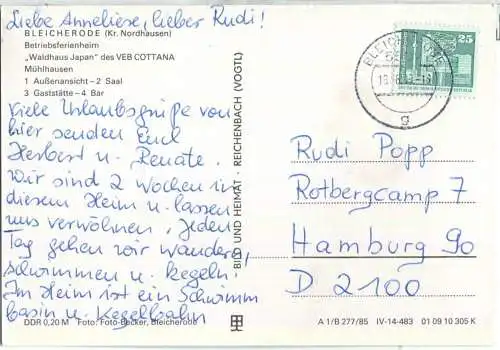 Liebe Anneliese, lieber Rudi!
BLEICHERODE (Kr. Nordhausen)
Betriebsferienheim
„Waldhaus Japan" des VEB COTTANA
Mühlhausen
1 Außenansicht – 2 Saal
3 Gaststätte – 4 Bar
Viele Urlaubsgrüße von
hier senden Euch
Herbert u. Renate.
Wir sind 2 Wochen in
diesem Heim u. lassen
uns verwöhnen, jeden
Tag gehen wir wandern,
schwimmen u. kegeln.
Im Heim ist ein Schwimm
basin u. Kegelbahn
DDR 0,20 M Foto: Foto-Becker, Bleicherode
BILD UND HEIMAT · REICHENBACH (VOGTL)
25
g
Rudi Popp
Rotbergcamp 7
Hamburg 90
D 2100
A 1/B 277/85 IV-14-483 01 09 10 305 K